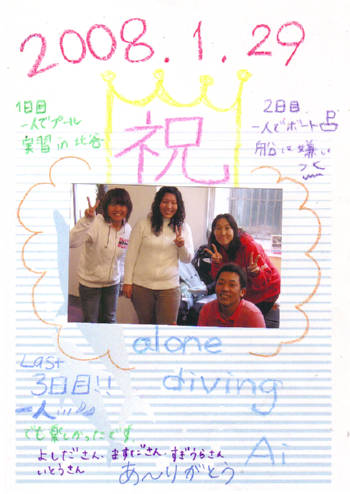 2008.1.29
1日目
一人でプール
実習 in 北谷
2日目
一人でボート
船は嫌い
祝
alone
diving
Last
3日目!!
一人
でも楽しかったです。
よしださん・ますださん・すぎうらさん
いとうさん
あ〜りがとう
Ai